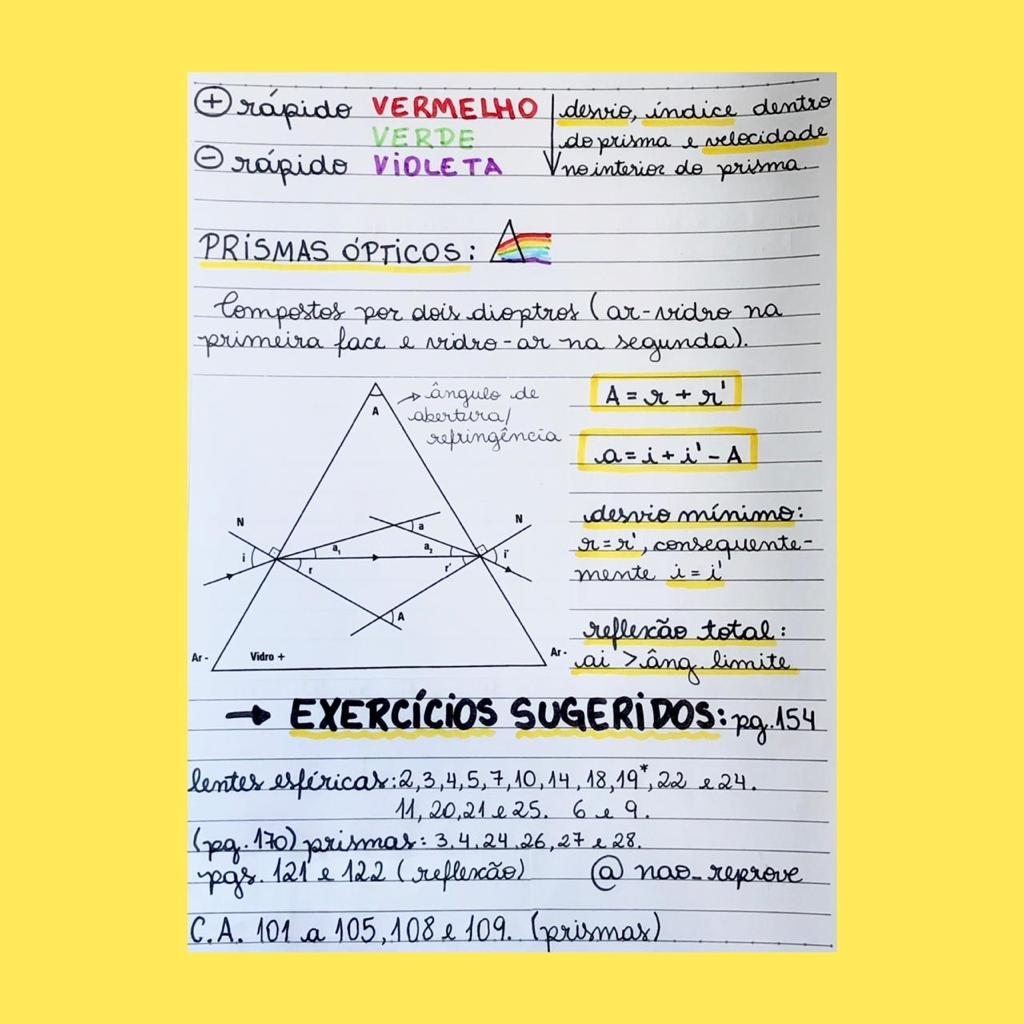 + rápido VERMELHO desvio, índice dentro
VERDE do prisma e velocidade
- rápido VIOLETA no interior do prisma.
PRISMAS ÓPTICOS:
Compostos por dois dioptros (ar-vidro na
primeira face e vidro-ar na segunda).
A → ângulo de
abertura/
refringência
A = r + r'
a = i + i' - A
desvio mínimo:
r = r', consequente-
mente i = i'
N N
a
i a₁ a₂ i'
r r'
A
reflexão total:
Ar - Vidro + Ar -
ai > âng. limite
→ EXERCÍCIOS SUGERIDOS: pg. 154
lentes esféricas: 2, 3, 4, 5, 7, 10, 14, 18, 19*, 22 e 24.
11, 20, 21 e 25. 6 e 9.
(pg. 170) prismas: 3. 4. 24. 26, 27 e 28.
pgs. 121 e 122 (reflexão) @nao_reprove
C.A. 101 a 105, 108 e 109. (prismas)